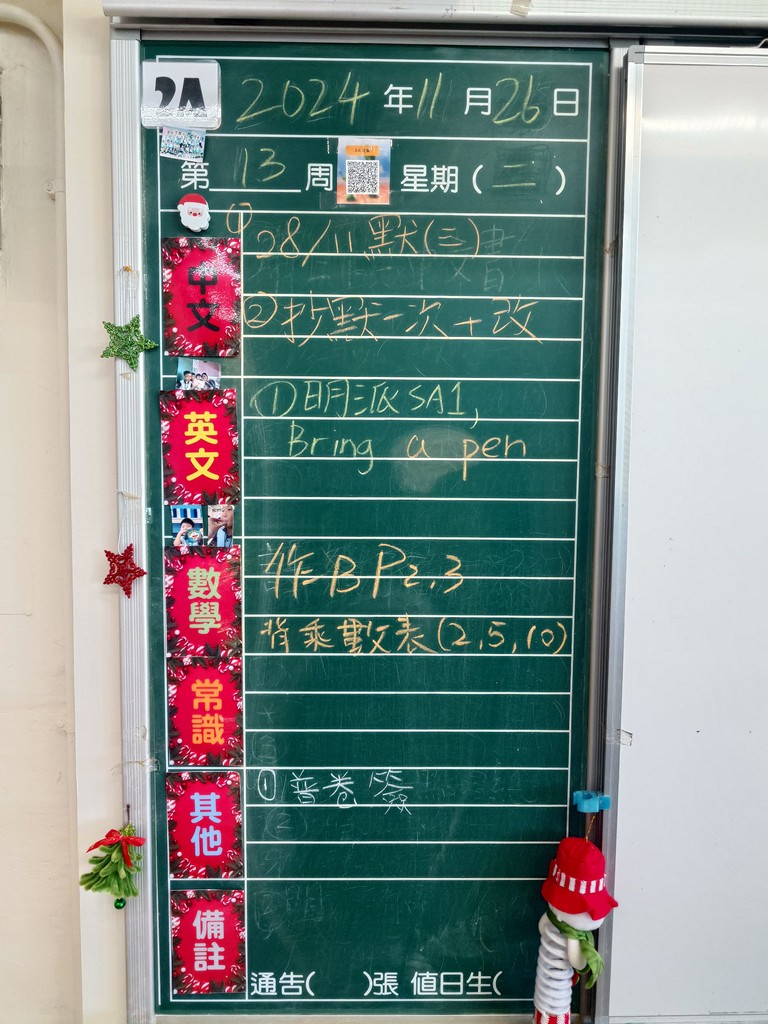 2A
2024 年 11 月 26 日
第 13 周 星期 ( 二 )
中文
① 28/11 默(三)
② 抄默一次+改
英文
① 明派SA1,
Bring a pen
數學
作B P2,3
背乘數表(2,5,10)
常識
其他
① 普卷簽
備註
通告( )張 值日生(